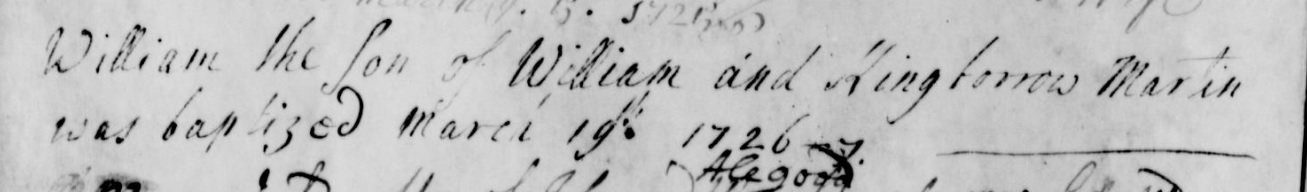 William the Son of William and Kingborrow Martin
was baptized March 19th 1726-7.